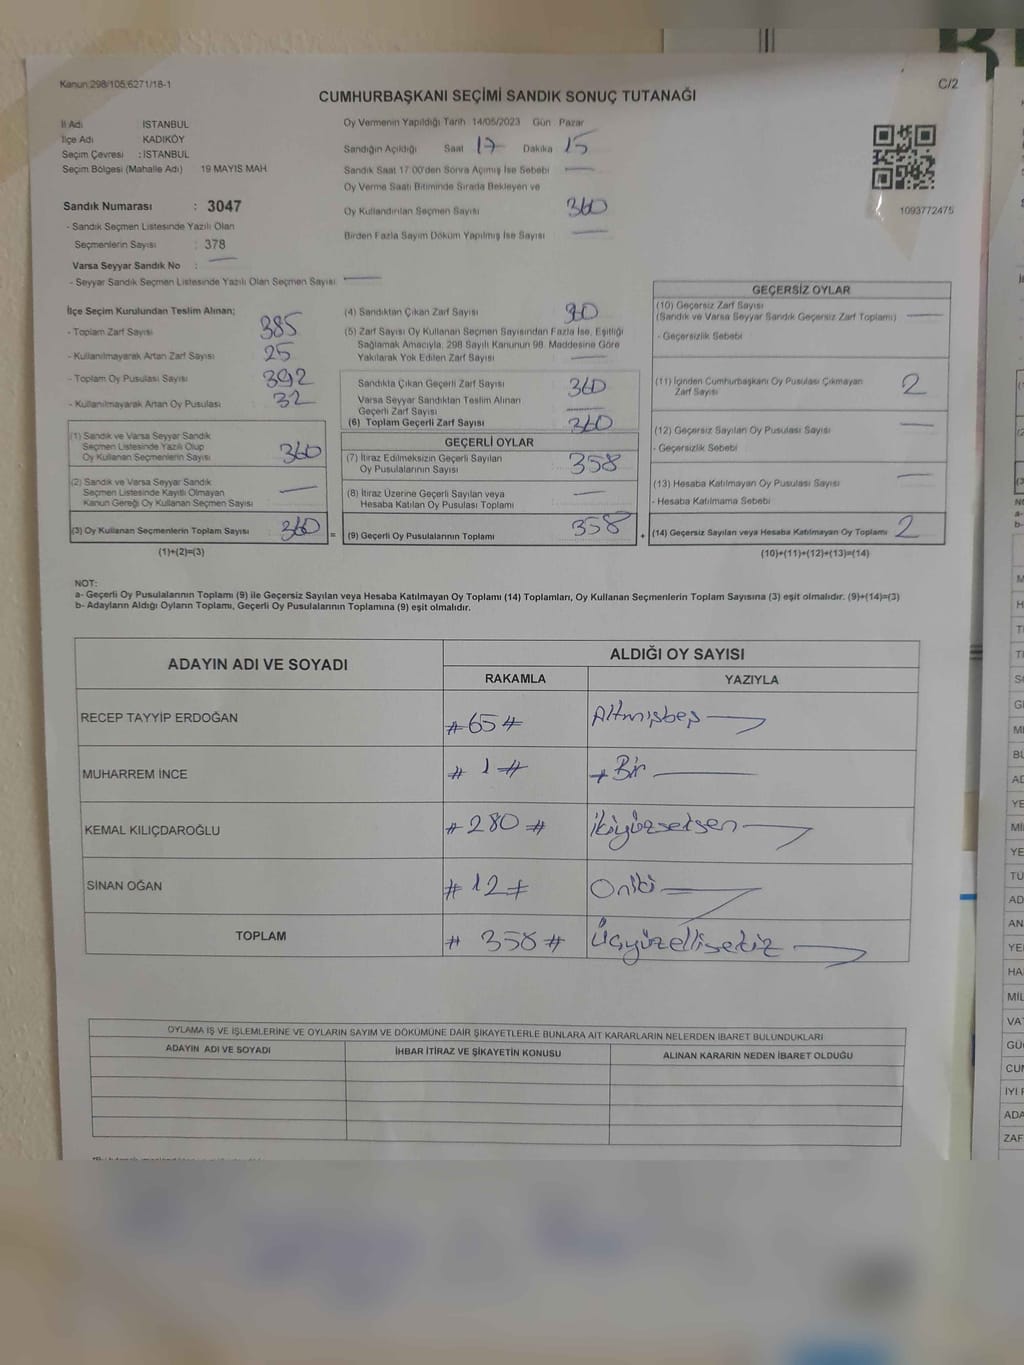 Kanun:298/105,6271/18-1
C/2
CUMHURBAŞKANI SEÇİMİ SANDIK SONUÇ TUTANAĞI
İl Adı İSTANBUL
İlçe Adı KADIKÖY
Seçim Çevresi : İSTANBUL
Seçim Bölgesi (Mahalle Adı) 19 MAYIS MAH
Sandık Numarası : 3047
- Sandık Seçmen Listesinde Yazılı Olan
Seçmenlerin Sayısı : 378
Varsa Seyyar Sandık No :
- Seyyar Sandık Seçmen Listesinde Yazılı Olan Seçmen Sayısı:
Oy Vermenin Yapıldığı Tarih 14/05/2023 Gün Pazar
Sandığın Açıldığı Saat 17 Dakika 15
Sandık Saat 17:00'den Sonra Açılmış İse Sebebi
Oy Verme Saati Bitiminde Sırada Bekleyen ve
Oy Kullandırılan Seçmen Sayısı 360
Birden Fazla Sayım Döküm Yapılmış İse Sayısı
1093772475
İlçe Seçim Kurulundan Teslim Alınan;
- Toplam Zarf Sayısı 385
- Kullanılmayarak Artan Zarf Sayısı 25
- Toplam Oy Pusulası Sayısı 392
- Kullanılmayarak Artan Oy Pusulası 32
(1) Sandık ve Varsa Seyyar Sandık
Seçmen Listesinde Yazılı Olup
Oy Kullanan Seçmenlerin Sayısı 360
(2) Sandık ve Varsa Seyyar Sandık
Seçmen Listesinde Kayıtlı Olmayan
Kanun Gereği Oy Kullanan Seçmen Sayısı
(3) Oy Kullanan Seçmenlerin Toplam Sayısı 360 =
(1)+(2)=(3)
(4) Sandıktan Çıkan Zarf Sayısı
(5) Zarf Sayısı Oy Kullanan Seçmen Sayısından Fazla İse, Eşitliği
Sağlamak Amacıyla, 298 Sayılı Kanunun 98. Maddesine Göre
Yakılarak Yok Edilen Zarf Sayısı
Sandıkta Çıkan Geçerli Zarf Sayısı 360
Varsa Seyyar Sandıktan Teslim Alınan
Geçerli Zarf Sayısı
(6) Toplam Geçerli Zarf Sayısı 360
GEÇERLİ OYLAR
(7) İtiraz Edilmeksizin Geçerli Sayılan
Oy Pusulalarının Sayısı 358
(8) İtiraz Üzerine Geçerli Sayılan veya
Hesaba Katılan Oy Pusulası Toplamı
(9) Geçerli Oy Pusulalarının Toplamı 358 +
GEÇERSİZ OYLAR
(10) Geçersiz Zarf Sayısı
(Sandık ve Varsa Seyyar Sandık Geçersiz Zarf Toplamı)
- Geçersizlik Sebebi
(11) İçinden Cumhurbaşkanı Oy Pusulası Çıkmayan
Zarf Sayısı 2
(12) Geçersiz Sayılan Oy Pusulası Sayısı
- Geçersizlik Sebebi
(13) Hesaba Katılmayan Oy Pusulası Sayısı
- Hesaba Katılmama Sebebi
(14) Geçersiz Sayılan veya Hesaba Katılmayan Oy Toplamı 2
(10)+(11)+(12)+(13)=(14)
NOT:
a- Geçerli Oy Pusulalarının Toplamı (9) ile Geçersiz Sayılan veya Hesaba Katılmayan Oy Toplamı (14) Toplamları, Oy Kullanan Seçmenlerin Toplam Sayısına (3) eşit olmalıdır. (9)+(14)=(3)
b- Adayların Aldığı Oyların Toplamı, Geçerli Oy Pusulalarının Toplamına (9) eşit olmalıdır.
ADAYIN ADI VE SOYADI
ALDIĞI OY SAYISI
RAKAMLA YAZIYLA
RECEP TAYYİP ERDOĞAN #65# Altmışbeş
MUHARREM İNCE #1# Bir
KEMAL KILIÇDAROĞLU #280# ikiyüzseksen
SİNAN OĞAN #12# Oniki
TOPLAM #358# Üçyüzellisekiz
OYLAMA İŞ VE İŞLEMLERİNE VE OYLARIN SAYIM VE DÖKÜMÜNE DAİR ŞİKAYETLERLE BUNLARA AİT KARARLARIN NELERDEN İBARET BULUNDUKLARI
ADAYIN ADI VE SOYADI İHBAR İTİRAZ VE ŞİKAYETİN KONUSU ALINAN KARARIN NEDEN İBARET OLDUĞU